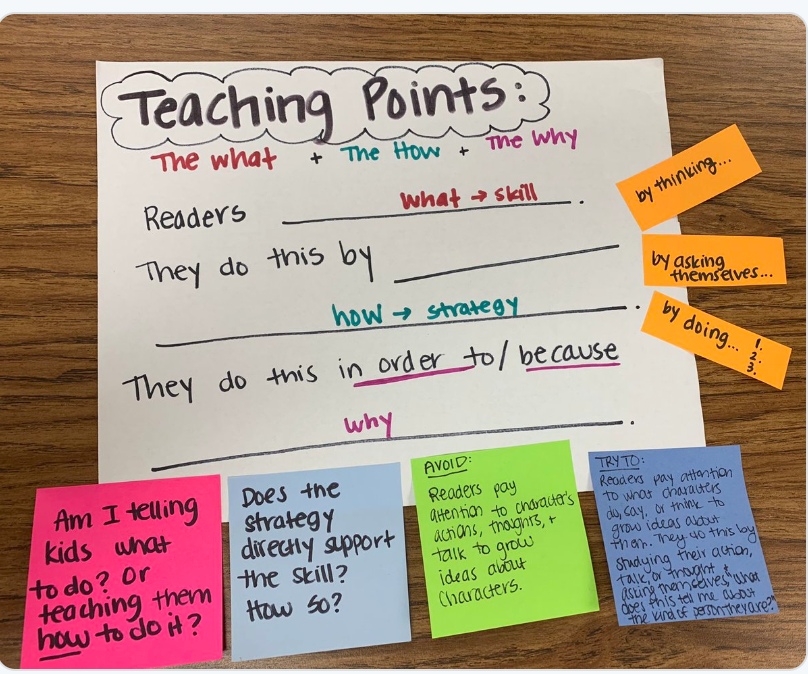 Teaching Points:
The what + The How + The Why
Readers what → skill.
They do this by
how → strategy.
They do this in order to/because
why.
by thinking...
by asking
themselves...
by doing... 1.
2.
3.
Am I telling
kids what
to do? Or
teaching them
how to do it?
Does the
strategy
directly support
the skill?
How so?
AVOID:
Readers pay
attention to character's
actions, thoughts, +
talk to grow
ideas about
characters.
TRY TO:
Readers pay attention
to what characters
do, say, or think to
grow ideas about
them. They do this by
studying their action,
talk, or thought &
asking themselves, "what
does this tell me about
the kind of person they are?"